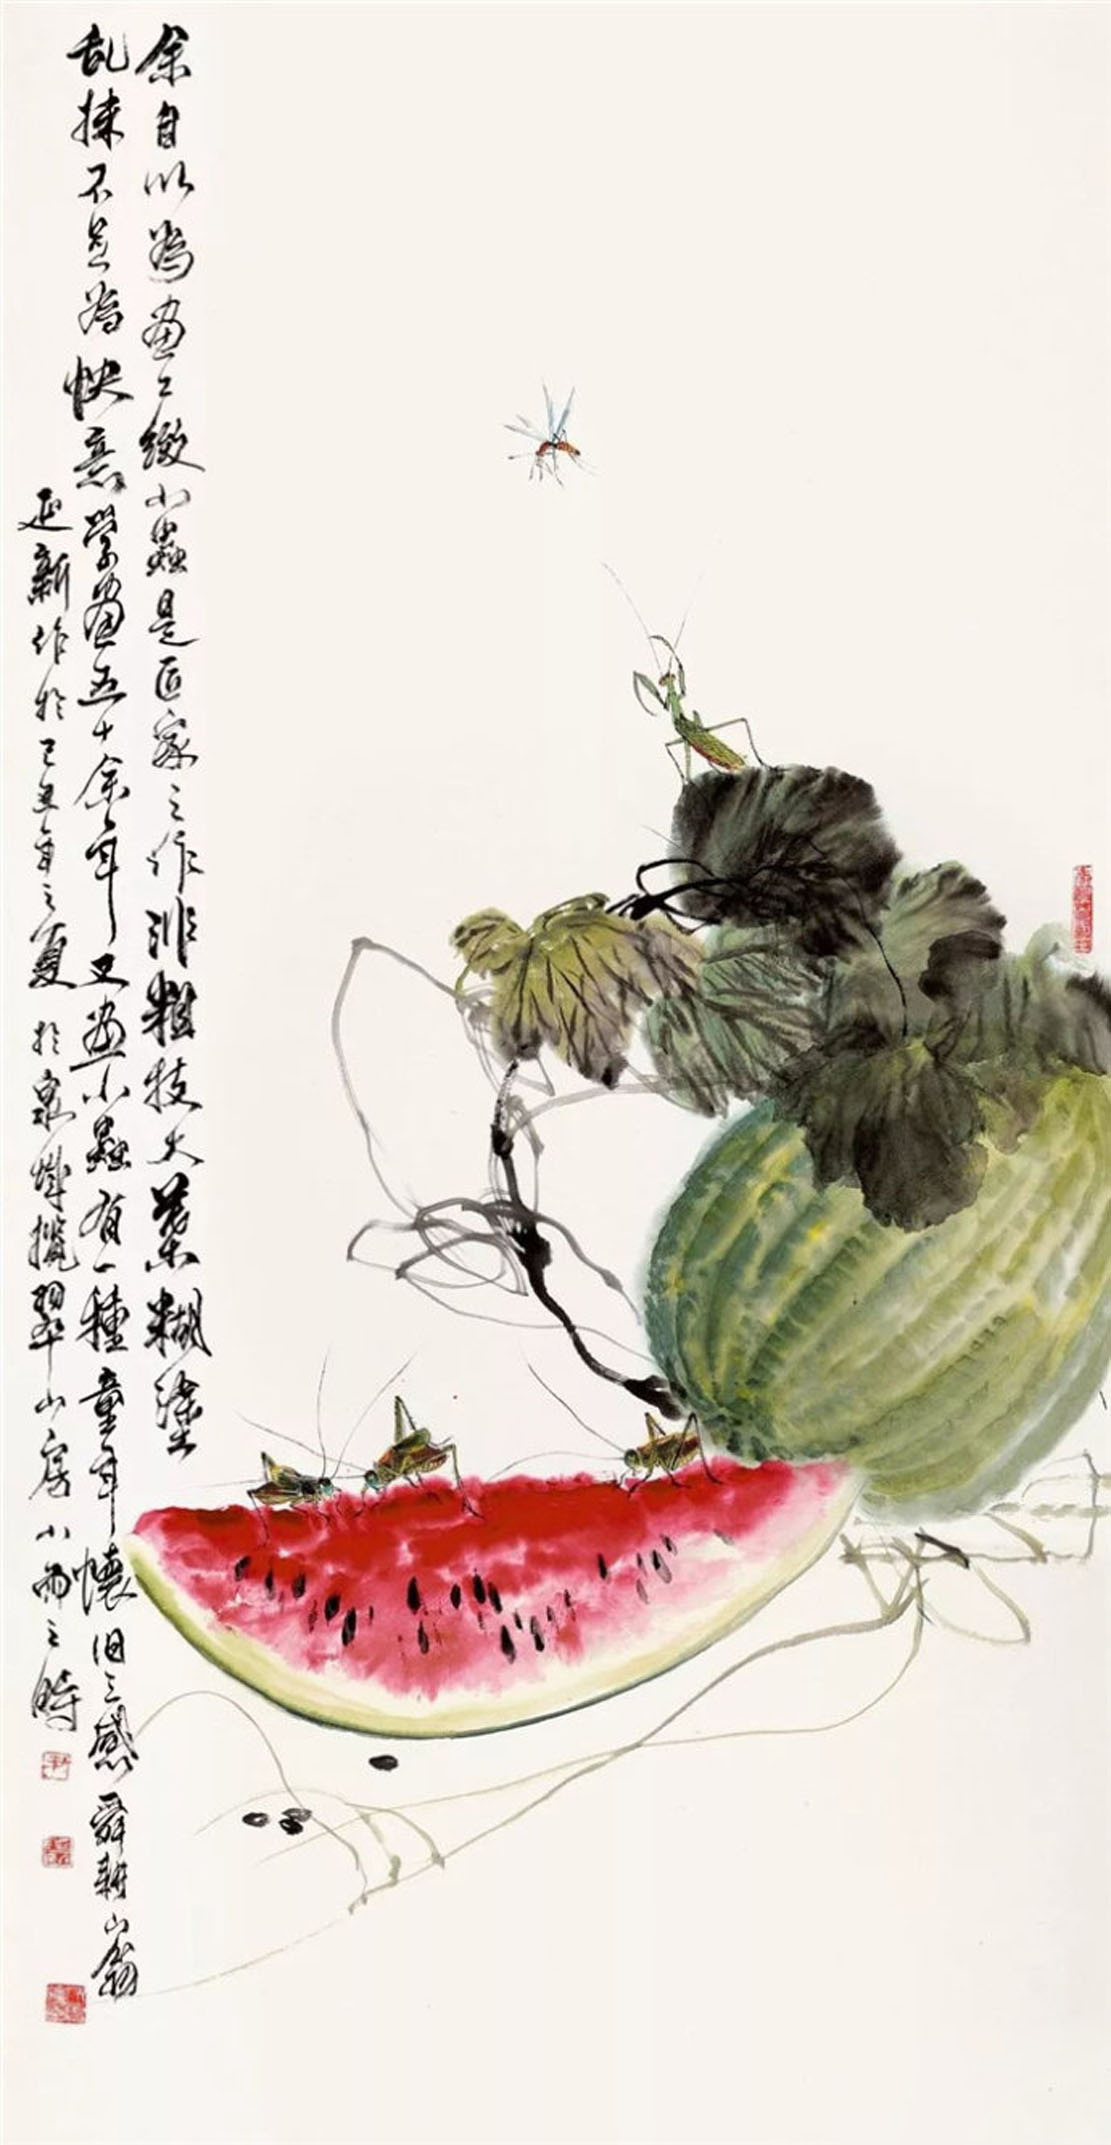 余自以为画工致小虫是匠家之作非粗枝大叶糊涂
乱抹不足为快意学画五十余年又画小蟲有一種童年懷旧之感舜耕山翁
延新作於己丑年之夏於泉城揽翠山房小雨之時